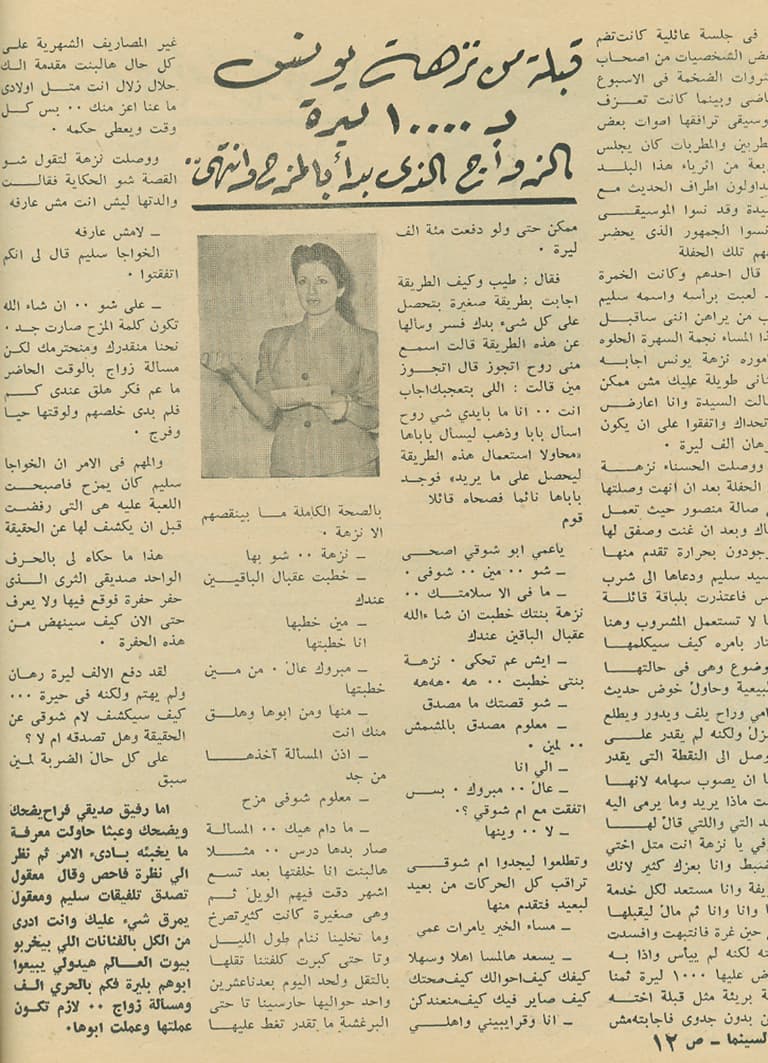 قبلة من نزهة يونس
بـ ١٠٠٠٠ ليرة
الزواج الذى بدأ بالمزح وانتهى..
فى جلسة عائلية كانت تضم
الشخصيات من اصحاب
الضخمة فى الاسبوع
وبينما كانت تعزف
ترافقها اصوات بعض
والمطربات كان يجلس
من اثرياء هذا البلد
اطراف الحديث مع
وقد نسوا الموسيقى
الجمهور الذى يحضر
تلك الحفلة
قال احدهم وكانت الخمرة
لعبت برأسه واسمه سليم
من يراهن اننى ساقبل
المساء نجمة السهرة الحلوه
نزهة يونس اجابه
طويلة عليك مش ممكن
السيدة وانا اعارض
واتفقوا على ان يكون
الف ليرة ٠
ووصلت الحسناء نزهة
الحفلة بعد ان انهت وصلتها
صالة منصور حيث تعمل
وبعد ان غنت وصفق لها
بحرارة تقدم منها
سليم ودعاها الى شرب
فاعتذرت بلباقة قائلة
لا تستعمل المشروب وهنا
بامره كيف سيكلمها
وهى فى حالتها
وحاول خوض حديث
وراح يلف ويدور ويطلع
ولكنه لم يقدر على
الى النقطة التى يقدر
ان يصوب سهامه لانها
ماذا يريد وما يرمى اليه
التي واللتي قال لها
يا نزهة انت مثل اختي
وانا بعزك كثير لانك
وانا مستعد لكل خدمة
وانا وانا ثم مال ليقبلها
حين غرة فانتبهت وافسدت
لكنه لم ييأس واذا به
عليها ١٠٠٠ ليرة ثمنا
بريئة مثل قبلة اخته
بدون جدوى فاجابته مش
ممكن حتى ولو دفعت مئة الف
ليرة ٠
فقال : طيب وكيف الطريقة
اجابت بطريقة صغيرة بتحصل
على كل شىء بدك فسر وسألها
عن هذه الطريقة قالت اسمع
منى روح اتجوز قال اتجوز
مين قالت : اللى بتعجبك اجاب
انت ٠٠ انا ما بايدي شي روح
اسأل بابا وذهب ليسأل باباها
«محاولا استعمال هذه الطريقة
ليحصل على ما يريد» فوجد
باباها نائما فصحاه قائلا
قوم
ياعمي ابو شوقي اصحى
ـ شو ٠٠ مين ٠٠ شوفى ٠
ـ ما فى الا سلامتك ٠٠
نزهة بنتك خطبت ان شاءالله
عقبال الباقين عندك
ـ ايش عم تحكى ٠ نزهة
بنتى خطبت ٠٠ هه ٠ههه
ـ شو قصتك ما مصدق
ـ معلوم مصدق بالمشمش
٠٠ لمين ٠
ـ الي انا
ـ عال ٠٠ مبروك ٠ بس
اتفقت مع ام شوقي ؟٠
ـ لا ٠٠ وينها
وتطلعوا ليجدوا ام شوقى
تراقب كل الحركات من بعيد
لبعيد فتقدم منها
ـ مساء الخير يامرات عمي
ـ يسعد هالمسا اهلا وسهلا
كيفك كيف احوالك كيف صحتك
كيف صاير فيك كيف من عندكن
ـ انا وقرايبيني واهلي
بالصحة الكاملة ما بينقصهم
الا نزهة ٠
ـ نزهة ٠٠ شو بها
ـ خطبت عقبال الباقين
عندك
ـ مين خطبها
انا خطبتها
ـ مبروك عال ٠ من مين
خطبتها
ـ منها ومن ابوها وهلق
منك انت
ـ اذن المسألة آخذها
من جد
ـ معلوم شوفى مزح
ـ ما دام هيك ٠٠ المسالة
صار بدها درس ٠٠ مثلا
هالبنت انا خلفتها بعد تسع
اشهر دقت فيهم الويل ثم
وهى صغيرة كانت كثير تصرخ
وما تخلينا ننام طول الليل
وتا حتى كبرت كلفتنا تقلها
بالتقل ولحد اليوم بعدنا عشرين
واحد حواليها حارسينا تا حتى
البرغشة ما تقدر تغط عليها
غير المصاريف الشهرية على
كل حال هالبنت مقدمة الك
حلال زلال انت متل اولادى
ما عنا اعز منك ٠٠ بس كل
وقت ويعطى حكمه ٠
ووصلت نزهة لتقول شو
القصة شو الحكاية فقالت
والدتها ليش انت مش عارفه
ـ لامش عارفه
الخواجا سليم قال لى انكم
اتفقتوا ٠
ـ على شو ٠٠ ان شاء الله
تكون كلمة المزح صارت جد ٠
نحنا منقدرك ومنحترمك لكن
مسالة زواج بالوقت الحاضر
ما عم فكر هلق عندى كم
فلم بدى خلصهم ولوقتها حيا
وفرج ٠
والمهم فى الامر ان الخواجا
سليم كان يمزح فاصبحت
اللعبة عليه هى التى رفضت
قبل ان يكشف لها عن الحقيقة
هذا ما حكاه لى بالحرف
الواحد صديقي الثرى الذى
حفر حفرة فوقع فيها ولا يعرف
حتى الان كيف سينهض من
هذه الحفرة ٠
لقد دفع الالف ليرة رهان
ولم يهتم ولكنه فى حيرة ٠٠٠
كيف سيكشف لام شوقى عن
الحقيقة وهل تصدقه ام لا ؟
على كل حال الضربة لمين
سبق
اما رفيق صديقي فراح يضحك
ويضحك وعبثا حاولت معرفة
ما يخبئه بادىء الامر ثم نظر
الي نظرة فاحص وقال معقول
تصدق تلفيقات سليم ومعقول
يمرق شىء عليك وانت ادرى
من الكل بالفنانات اللي بيخربو
بيوت العالم هيدولي يبيعوا
ابوهم بليرة فكم بالحري الف
ومسالة زواج ٠٠ لازم تكون
عملتها وعملت ابوها٠
السينما ـ ص ١٢